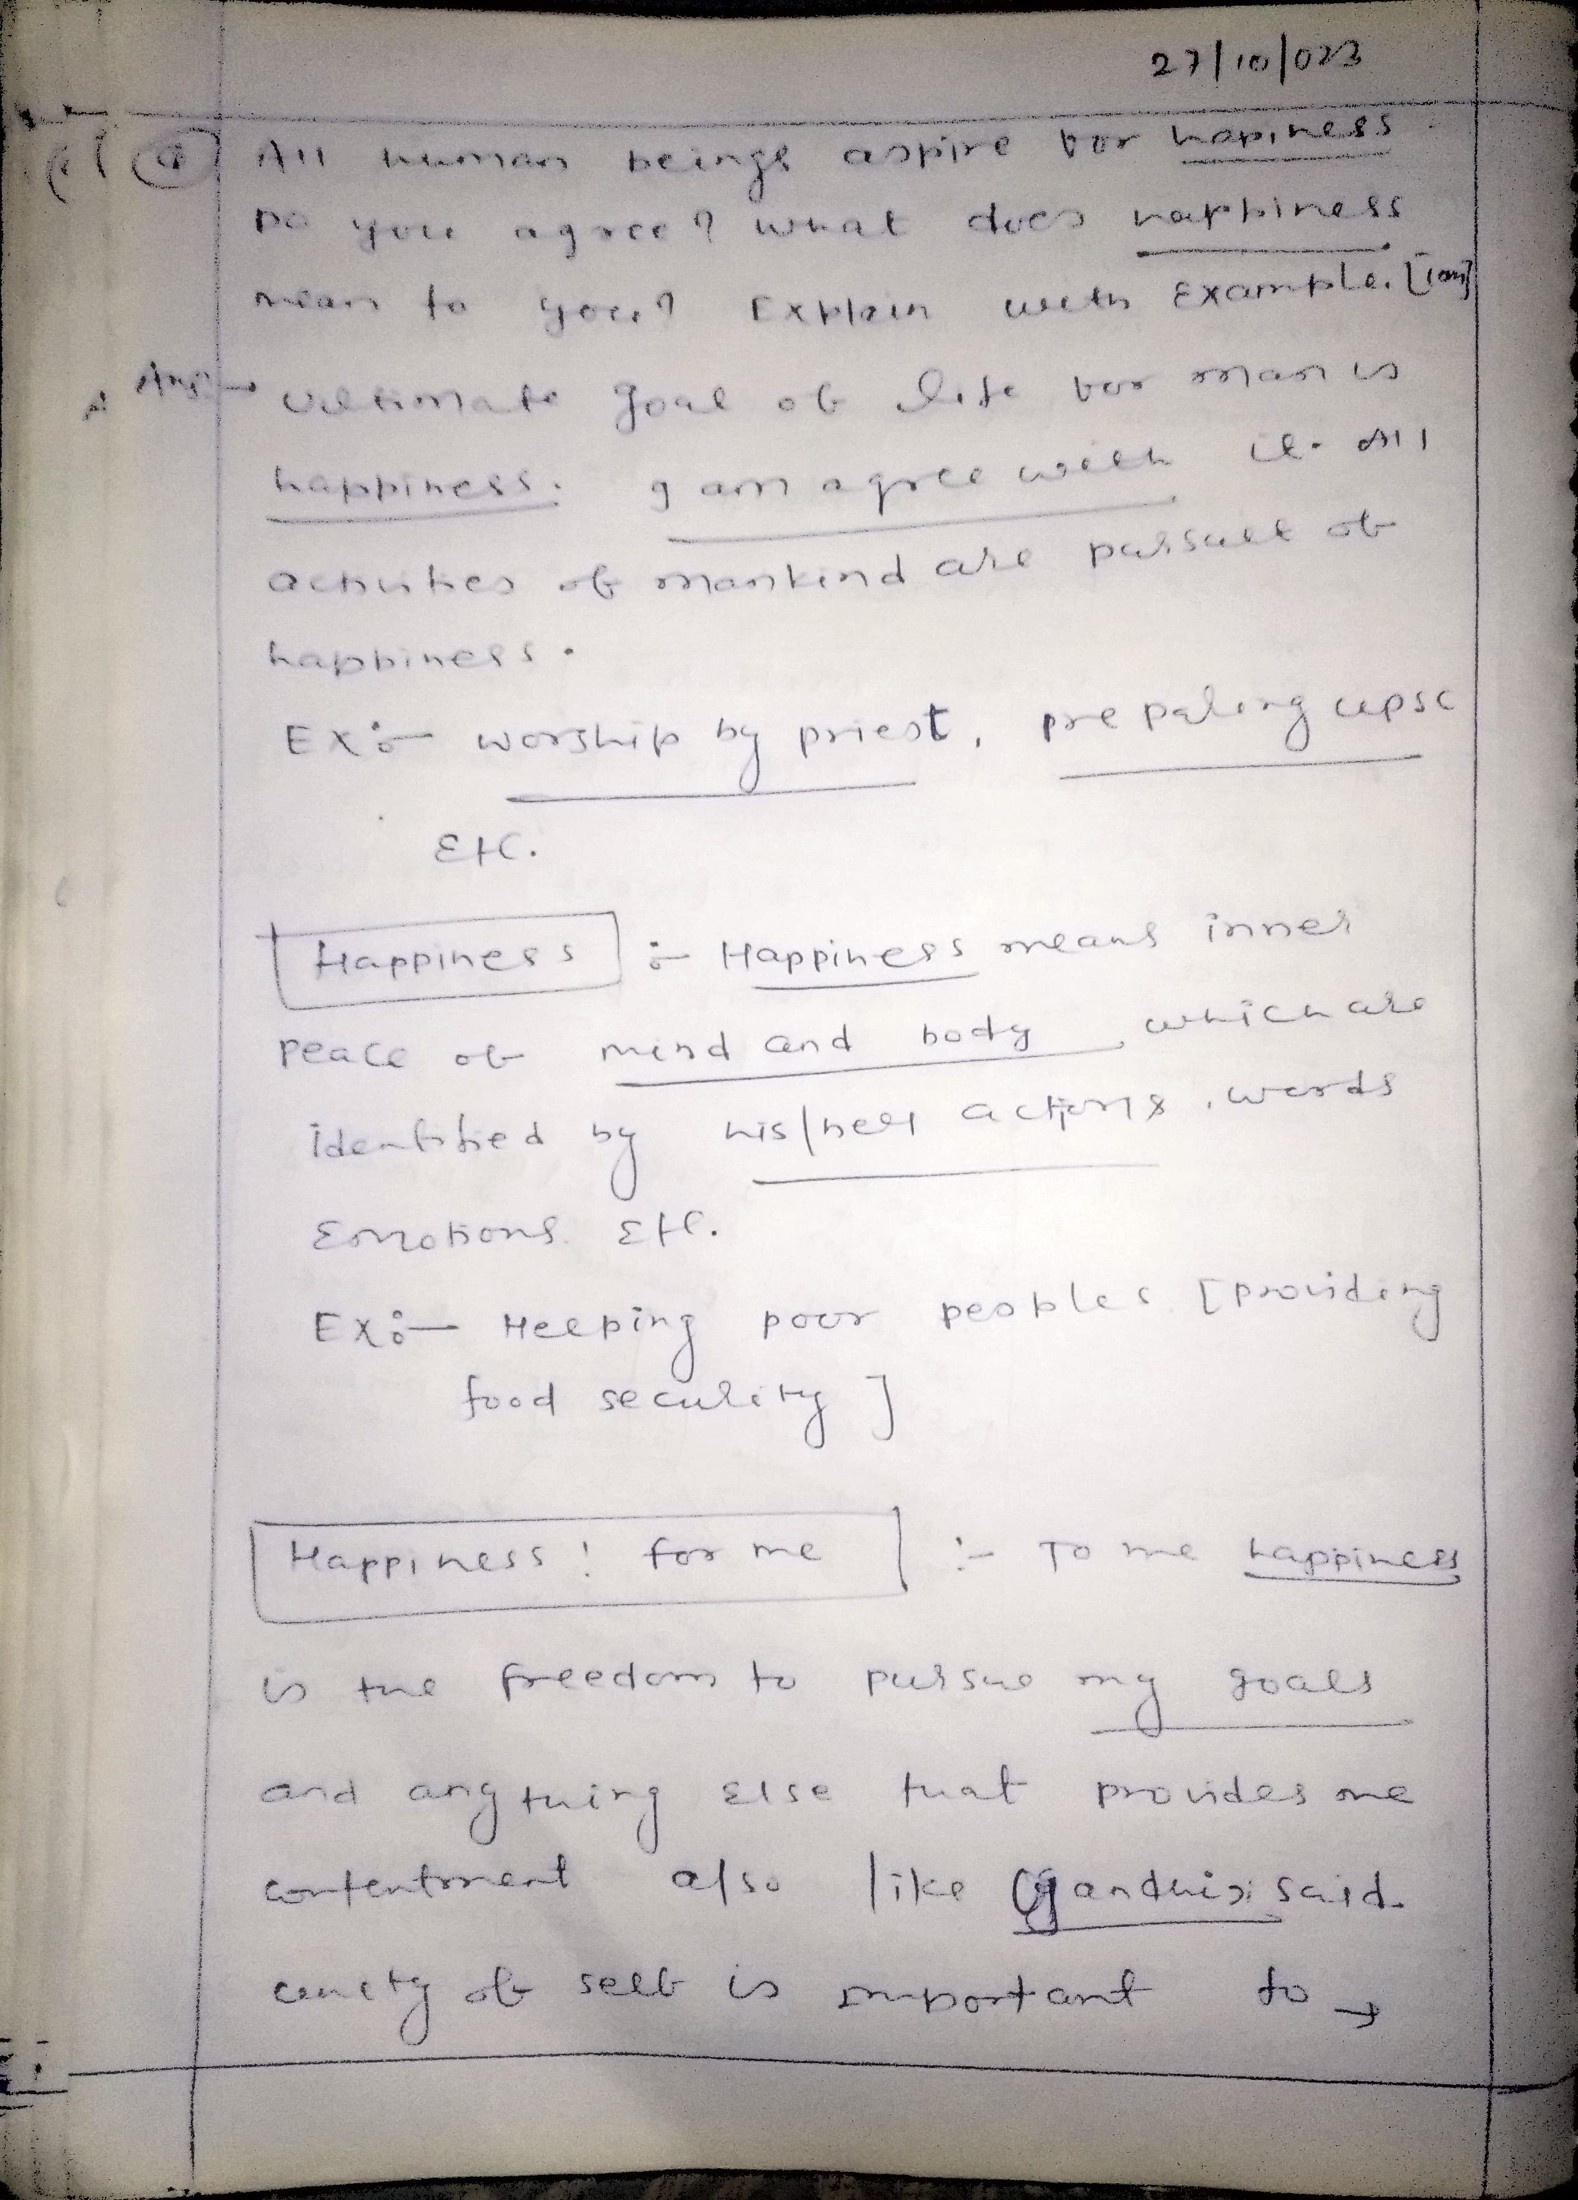 27/10/023
Q All human beings aspire for hapiness.
Do you agree? What does happiness
mean to you? Explain with Example.
Ans:- Ultimate goal of life for man is
happiness. I am agree with it. All
activities of mankind are pursuit of
happiness.
Ex:- worship by priest, preparing UPSC
Etc.
Happiness :- Happiness means inner
peace of mind and body, which are
identified by his/her actions, words
Emotions Etc.
Ex:- Helping poor peoples [providing
food security]
Happiness! for me :- To me happiness
is the freedom to pursue my goals
and anything else that provides me
contentment also like Gandhiji said.
of self is important to →